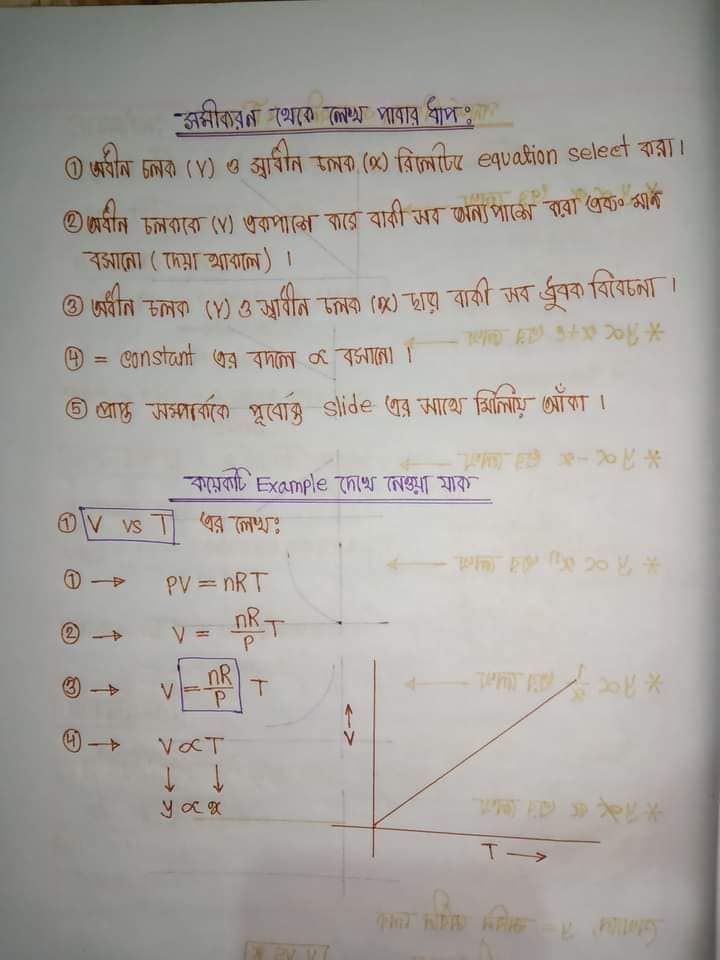 সমীকরন থেকে লেখ পাবার ধাপ:
① অধীন চলক (Y) ও স্বাধীন চলক (x) রিলেটেড equation select করা।
② অধীন চলককে (Y) একপাশে করে বাকী সব অন্যপাশে করা এবং মান
বসানো (দেয়া থাকলে) ।
③ অধীন চলক (Y) ও স্বাধীন চলক (x) ছাড়া বাকী সব ধ্রুবক বিবেচনা ।
④ = constant এর বদলে ∝ বসানো ।
⑤ প্রাপ্ত সম্পর্ককে পূর্বোক্ত slide এর সাথে মিলিয়ে আঁকা ।
কয়েকটি Example দেখে নেওয়া যাক
① V vs T এর লেখ:
① → PV = nRT
② → V = nR/P T
③ → V = nR/P T
④ → V ∝ T
↓ ↓
y ∝ x
↑
V
T →